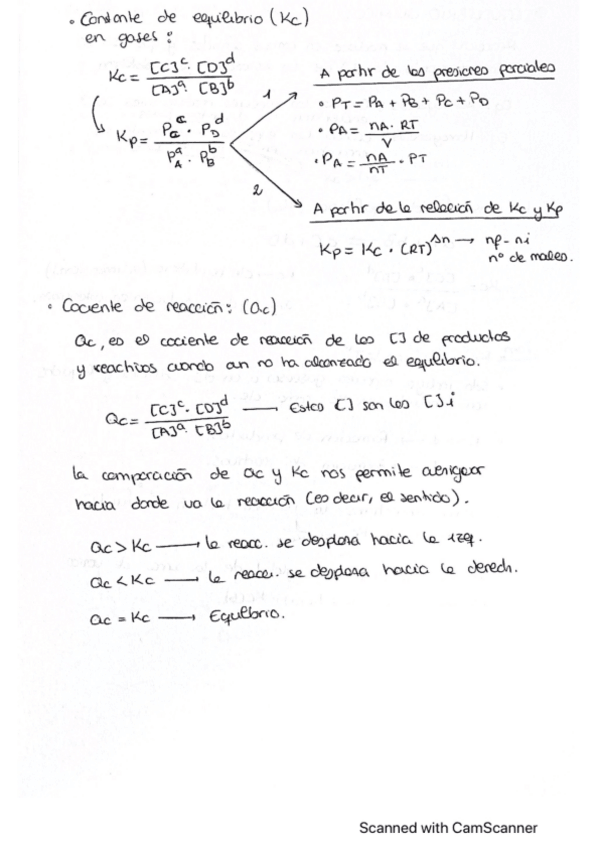 • Constante de equilibrio (Kc)
en gases:
Kc = [C]^c · [D]^d / [A]^a · [B]^b
Kp = P_C^c · P_D^d / P_A^a · P_B^b
1
A partir de las presiones parciales
• PT = PA + PB + PC + PD
• PA = nA · RT / V
• PA = nA / nT · PT
2
A partir de la relación de Kc y Kp
Kp = Kc · (RT)^Δn → nf - ni
nº de moles.
• Cociente de reacción: (Qc)
Qc, es el cociente de reacción de las [] de productos
y reactivos cuando aun no ha alcanzado el equilibrio.
Qc = [C]^c · [D]^d / [A]^a · [B]^b → Estas [] son las []i
la comparación de Qc y Kc nos permite averiguar
hacia donde va la reacción (es decir, el sentido).
Qc > Kc → la reacc. se desplaza hacia la izq.
Qc < Kc → la reacc. se desplaza hacia la derech.
Qc = Kc → Equilibrio.
Scanned with CamScanner